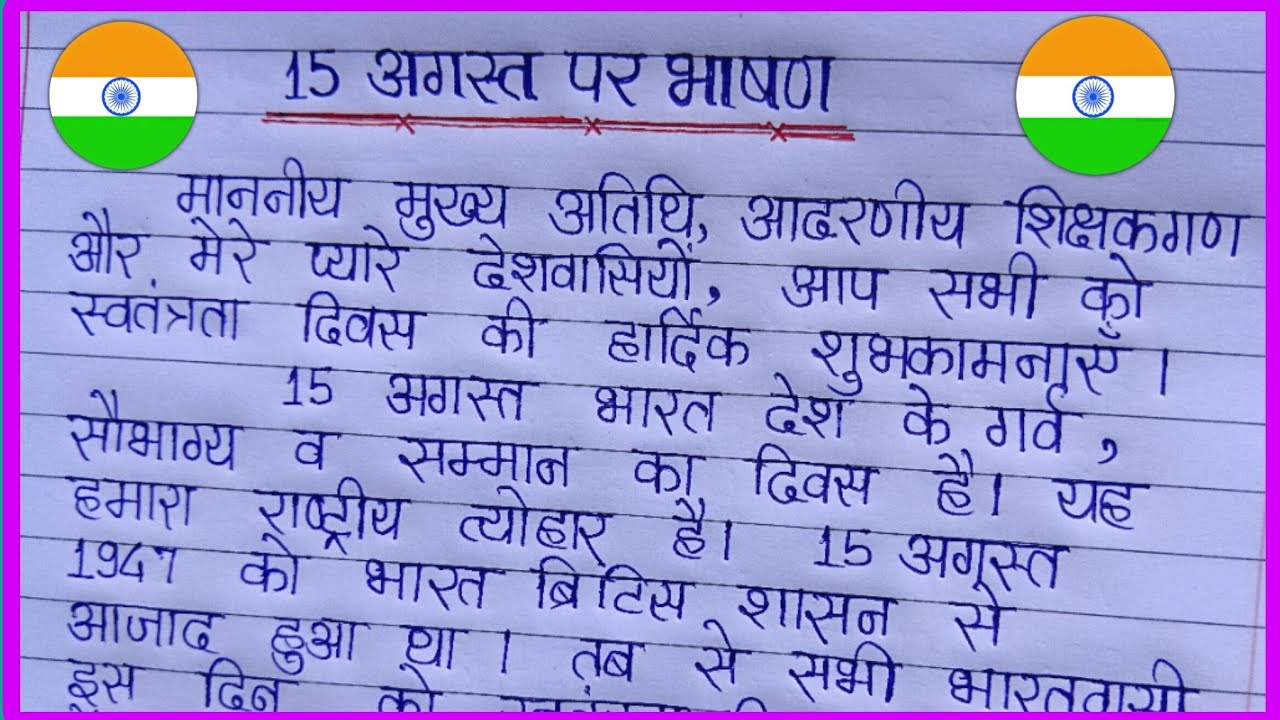 15 अगस्त पर भाषण
माननीय मुख्य अतिथि, आदरणीय शिक्षकगण
और मेरे प्यारे देशवासियों, आप सभी को
स्वतंत्रता दिवस की हार्दिक शुभकामनाएँ।
15 अगस्त भारत देश के गर्व,
सौभाग्य व सम्मान का दिवस है। यह
हमारा राष्ट्रीय त्योहार है। 15 अगस्त
1947 को भारत ब्रिटिस शासन से
आजाद हुआ था। तब से सभी भारतवासी
इस दिन को